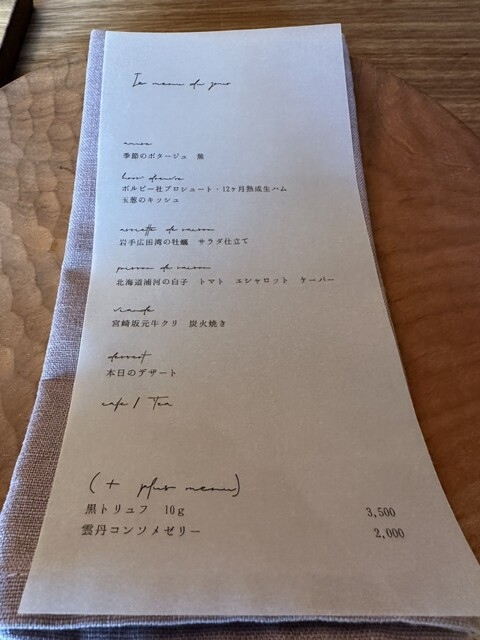 Le menu du jour
amuse
季節のポタージュ 蕪
hors d'œuvre
ボルビー社プロシュート・12ヶ月熟成生ハム
玉葱のキッシュ
assiette de saison
岩手広田湾の牡蠣 サラダ仕立て
poisson de saison
北海道浦河の白子 トマト エシャロット ケーパー
viande
宮崎坂元牛クリ 炭火焼き
dessert
本日のデザート
cafe / Tea
(+ plus menu)
黒トリュフ 10g 3,500
雲丹コンソメゼリー 2,000